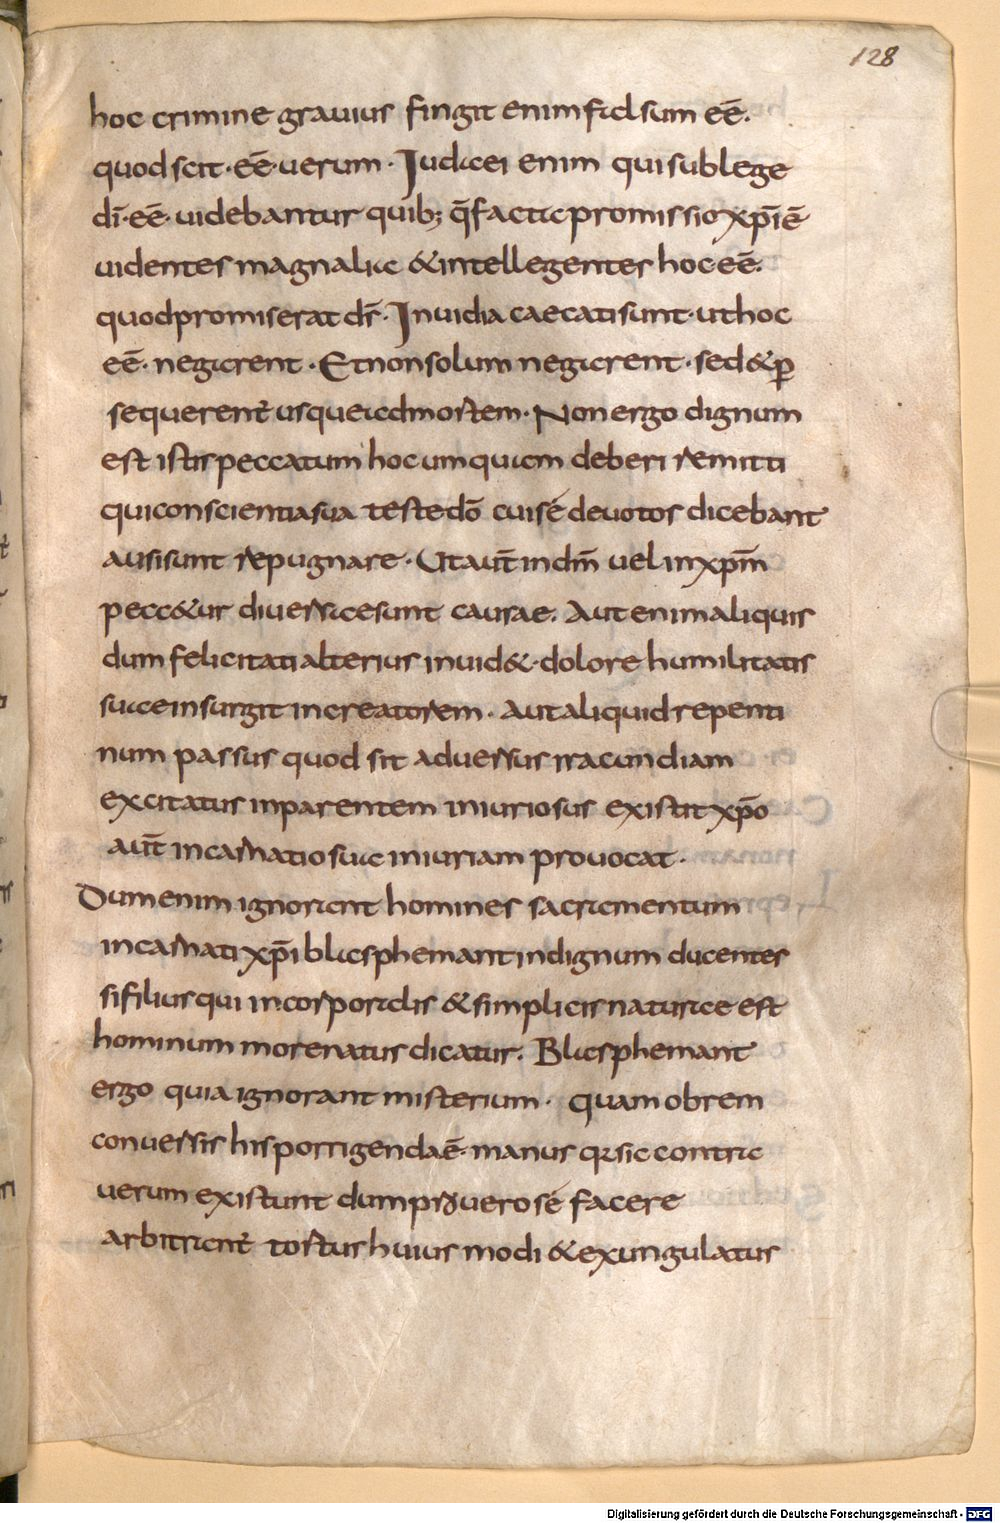 128
hoc crimine grauius fingit enim falsum eē.
quod scit· eē· uerum · Iudaei enim qui sub lege
dī· eē· uidebantur quib; q̄ facta promissio xp̄i ē
uidentes magnalia & intellegentes hoc eē.
quod promiserat dr̄· Inuidia caecati sunt· ut hoc
eē· negarent · Et non solum negarent · sed & ꝑ
sequerent̄ usque ad mortem· Non ergo dignum
est istis peccatum hoc umquam deberi remitti
qui conscientia sua teste dō cui sé deuotos dicebant
ausi sunt repugnare · Ut aut̄ in dm̄ uel in xpm̄
pecc&ur diuersae sunt causae. Aut enim aliquis
dum felicitati alterius inuid&· dolore humilitatis
suae insurgit in creatorem· Aut aliquid repenti
num passus quod sit aduersus iracundiam
excitatus in parentem iniuriosus existit xp̄o
aut̄ incarnatio sua iniuriam prouocat·
Dum enim ignorant homines sacramentum
incarnati xp̄i blasphemant indignum ducentes
si filius qui incorporalis & simplicis naturae est
hominum more natus dicatur. Blasphemant
ergo quia ignorant misterium· quam obrem
conuersis his porrigenda ē· manus qa sic contra
uerum existunt dum pro uero sé facere
arbitrent̄ tostus huius modi & exungulatus
Digitalisierung gefördert durch die Deutsche Forschungsgemeinschaft - DFG